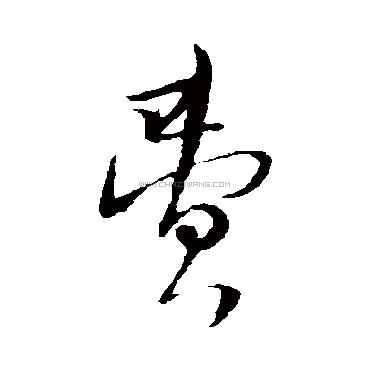 費
WWW.CHAZIWANG.COM